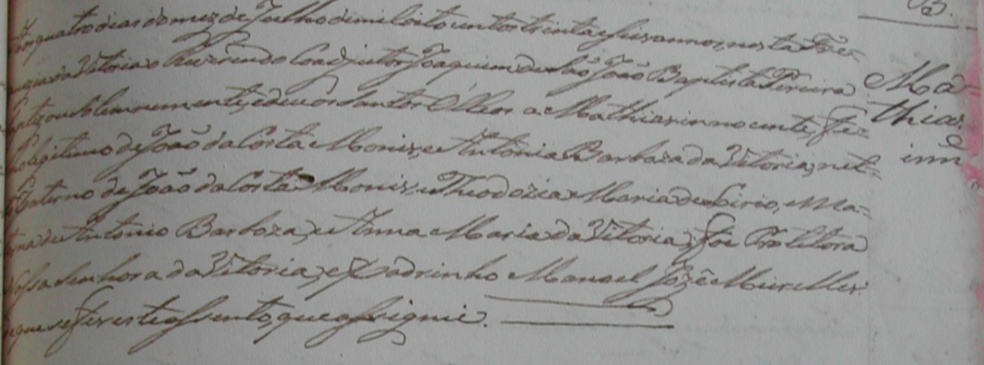 quatro dias do mez de Julho de mil oito centos trinta e seis annos, nesta Fre-
guezia da Vitoria o Reverendo Coadjutor Joaquim de São João Baptista Pereira
baptizou solemnemente, e deu os Santos Oleos a Mathias innocente, fi-
lho legitimo de João da Costa Moniz, e Antonia Barboza da Vitoria, net-
o Paterno de João da Costa Moniz, e Theodozia Maria de Sirio, Ma-
terno de Antonio Barboza, e Anna Maria da Vitoria, foi Protetora
Nossa Senhora da Vitoria, e Padrinho Manoel Jozé Meirelles.
e que se fez este assento, que assignei.
Ma-
thias
inn